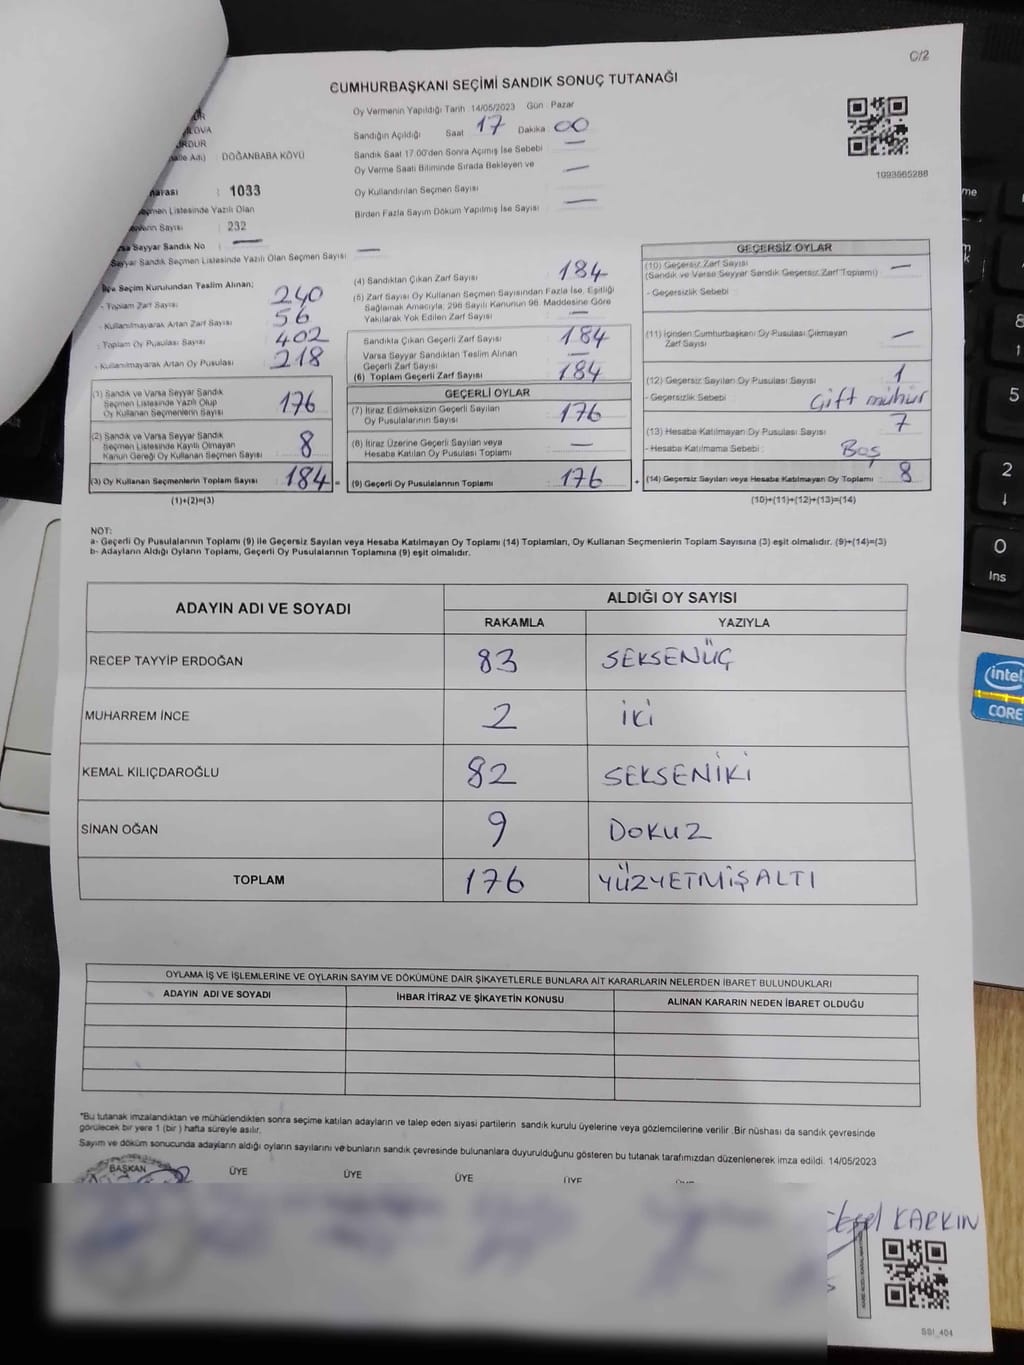 C/2
CUMHURBAŞKANI SEÇİMİ SANDIK SONUÇ TUTANAĞI
Oy Vermenin Yapıldığı Tarih 14/05/2023 Gün Pazar
Sandığın Açıldığı Saat 17 Dakika 00
Sandık Saat 17.00'den Sonra Açımış İse Sebebi —
Oy Verme Saati Bitiminde Sırada Bekleyen ve
Oy Kullandırılan Seçmen Sayısı —
Birden Fazla Sayım Döküm Yapılmış İse Sayısı —
1093665288
DOĞANBABA KÖYÜ
: 1033
Listesinde Yazılı Olan
Sayısı : 232
Seyyar Sandık No —
Seyyar Sandık Seçmen Listesinde Yazılı Olan Seçmen Sayısı —
İlçe Seçim Kurulundan Teslim Alınan;
- Toplam Zarf Sayısı 240
- Kullanılmayarak Artan Zarf Sayısı 56
- Toplam Oy Pusulası Sayısı 402
- Kullanılmayarak Artan Oy Pusulası 218
(1) Sandık ve Varsa Seyyar Sandık
Seçmen Listesinde Yazılı Olup
Oy Kullanan Seçmenlerin Sayısı 176
(2) Sandık ve Varsa Seyyar Sandık
Seçmen Listesinde Kayıtlı Olmayan
Kanun Gereği Oy Kullanan Seçmen Sayısı 8
(3) Oy Kullanan Seçmenlerin Toplam Sayısı 184 =
(1)+(2)=(3)
(4) Sandıktan Çıkan Zarf Sayısı 184
(5) Zarf Sayısı Oy Kullanan Seçmen Sayısından Fazla İse, Eşitliği
Sağlamak Amacıyla; 298 Sayılı Kanunun 98. Maddesine Göre
Yakılarak Yok Edilen Zarf Sayısı —
Sandıkta Çıkan Geçerli Zarf Sayısı 184
Varsa Seyyar Sandıktan Teslim Alınan
Geçerli Zarf Sayısı —
(6) Toplam Geçerli Zarf Sayısı 184
GEÇERLİ OYLAR
(7) İtiraz Edilmeksizin Geçerli Sayılan
Oy Pusulalarının Sayısı 176
(8) İtiraz Üzerine Geçerli Sayılan veya
Hesaba Katılan Oy Pusulası Toplamı —
(9) Geçerli Oy Pusulalarının Toplamı 176 +
GEÇERSİZ OYLAR
(10) Geçersiz Zarf Sayısı
(Sandık ve Varsa Seyyar Sandık Geçersiz Zarf Toplamı) —
- Geçersizlik Sebebi :
(11) İçinden Cumhurbaşkanı Oy Pusulası Çıkmayan
Zarf Sayısı —
(12) Geçersiz Sayılan Oy Pusulası Sayısı 1
- Geçersizlik Sebebi : Çift mühür
(13) Hesaba Katılmayan Oy Pusulası Sayısı 7
- Hesaba Katılmama Sebebi : Boş
(14) Geçersiz Sayılan veya Hesaba Katılmayan Oy Toplamı 8
(10)+(11)+(12)+(13)=(14)
NOT:
a- Geçerli Oy Pusulalarının Toplamı (9) ile Geçersiz Sayılan veya Hesaba Katılmayan Oy Toplamı (14) Toplamları, Oy Kullanan Seçmenlerin Toplam Sayısına (3) eşit olmalıdır. (9)+(14)=(3)
b- Adayların Aldığı Oyların Toplamı, Geçerli Oy Pusulalarının Toplamına (9) eşit olmalıdır.
ADAYIN ADI VE SOYADI ALDIĞI OY SAYISI
RAKAMLA YAZIYLA
RECEP TAYYİP ERDOĞAN 83 SEKSENÜÇ
MUHARREM İNCE 2 İKİ
KEMAL KILIÇDAROĞLU 82 SEKSENİKİ
SİNAN OĞAN 9 DOKUZ
TOPLAM 176 YÜZYETMİŞALTI
OYLAMA İŞ VE İŞLEMLERİNE VE OYLARIN SAYIM VE DÖKÜMÜNE DAİR ŞİKAYETLERLE BUNLARA AİT KARARLARIN NELERDEN İBARET BULUNDUKLARI
ADAYIN ADI VE SOYADI İHBAR İTİRAZ VE ŞİKAYETİN KONUSU ALINAN KARARIN NEDEN İBARET OLDUĞU
*Bu tutanak imzalandıktan ve mühürlendikten sonra seçime katılan adayların ve talep eden siyasi partilerin sandık kurulu üyelerine veya gözlemcilerine verilir. Bir nüshası da sandık çevresinde
görülecek bir yere 1 (bir) hafta süreyle asılır.
Sayım ve döküm sonucunda adayların aldığı oyların sayılarını ve bunların sandık çevresinde bulunanlara duyurulduğunu gösteren bu tutanak tarafımızdan düzenlenerek imza edildi. 14/05/2023
BAŞKAN ÜYE ÜYE ÜYE ÜYE
KARKIN
SSI_404
intel
CORE
5
2
↓
0
Ins